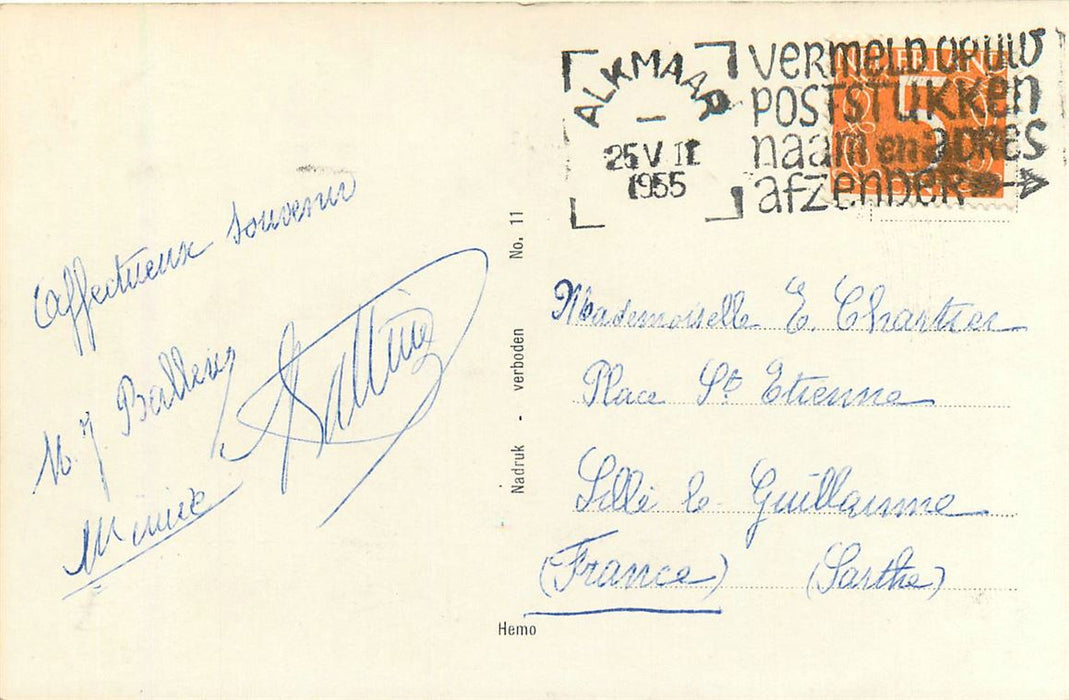 ALKMAAR
25 VII
1955
VERMELD OP UW
POSTSTUKKEN
naam en ADRES
afZENDER
NEDERLAND
5
Affectueux souvenir
M. J
Nadruk - verboden No. 11
Mademoiselle E. Chartier
Place St Etienne
Sillé le Guillaume
(France) (Sarthe)
Hemo